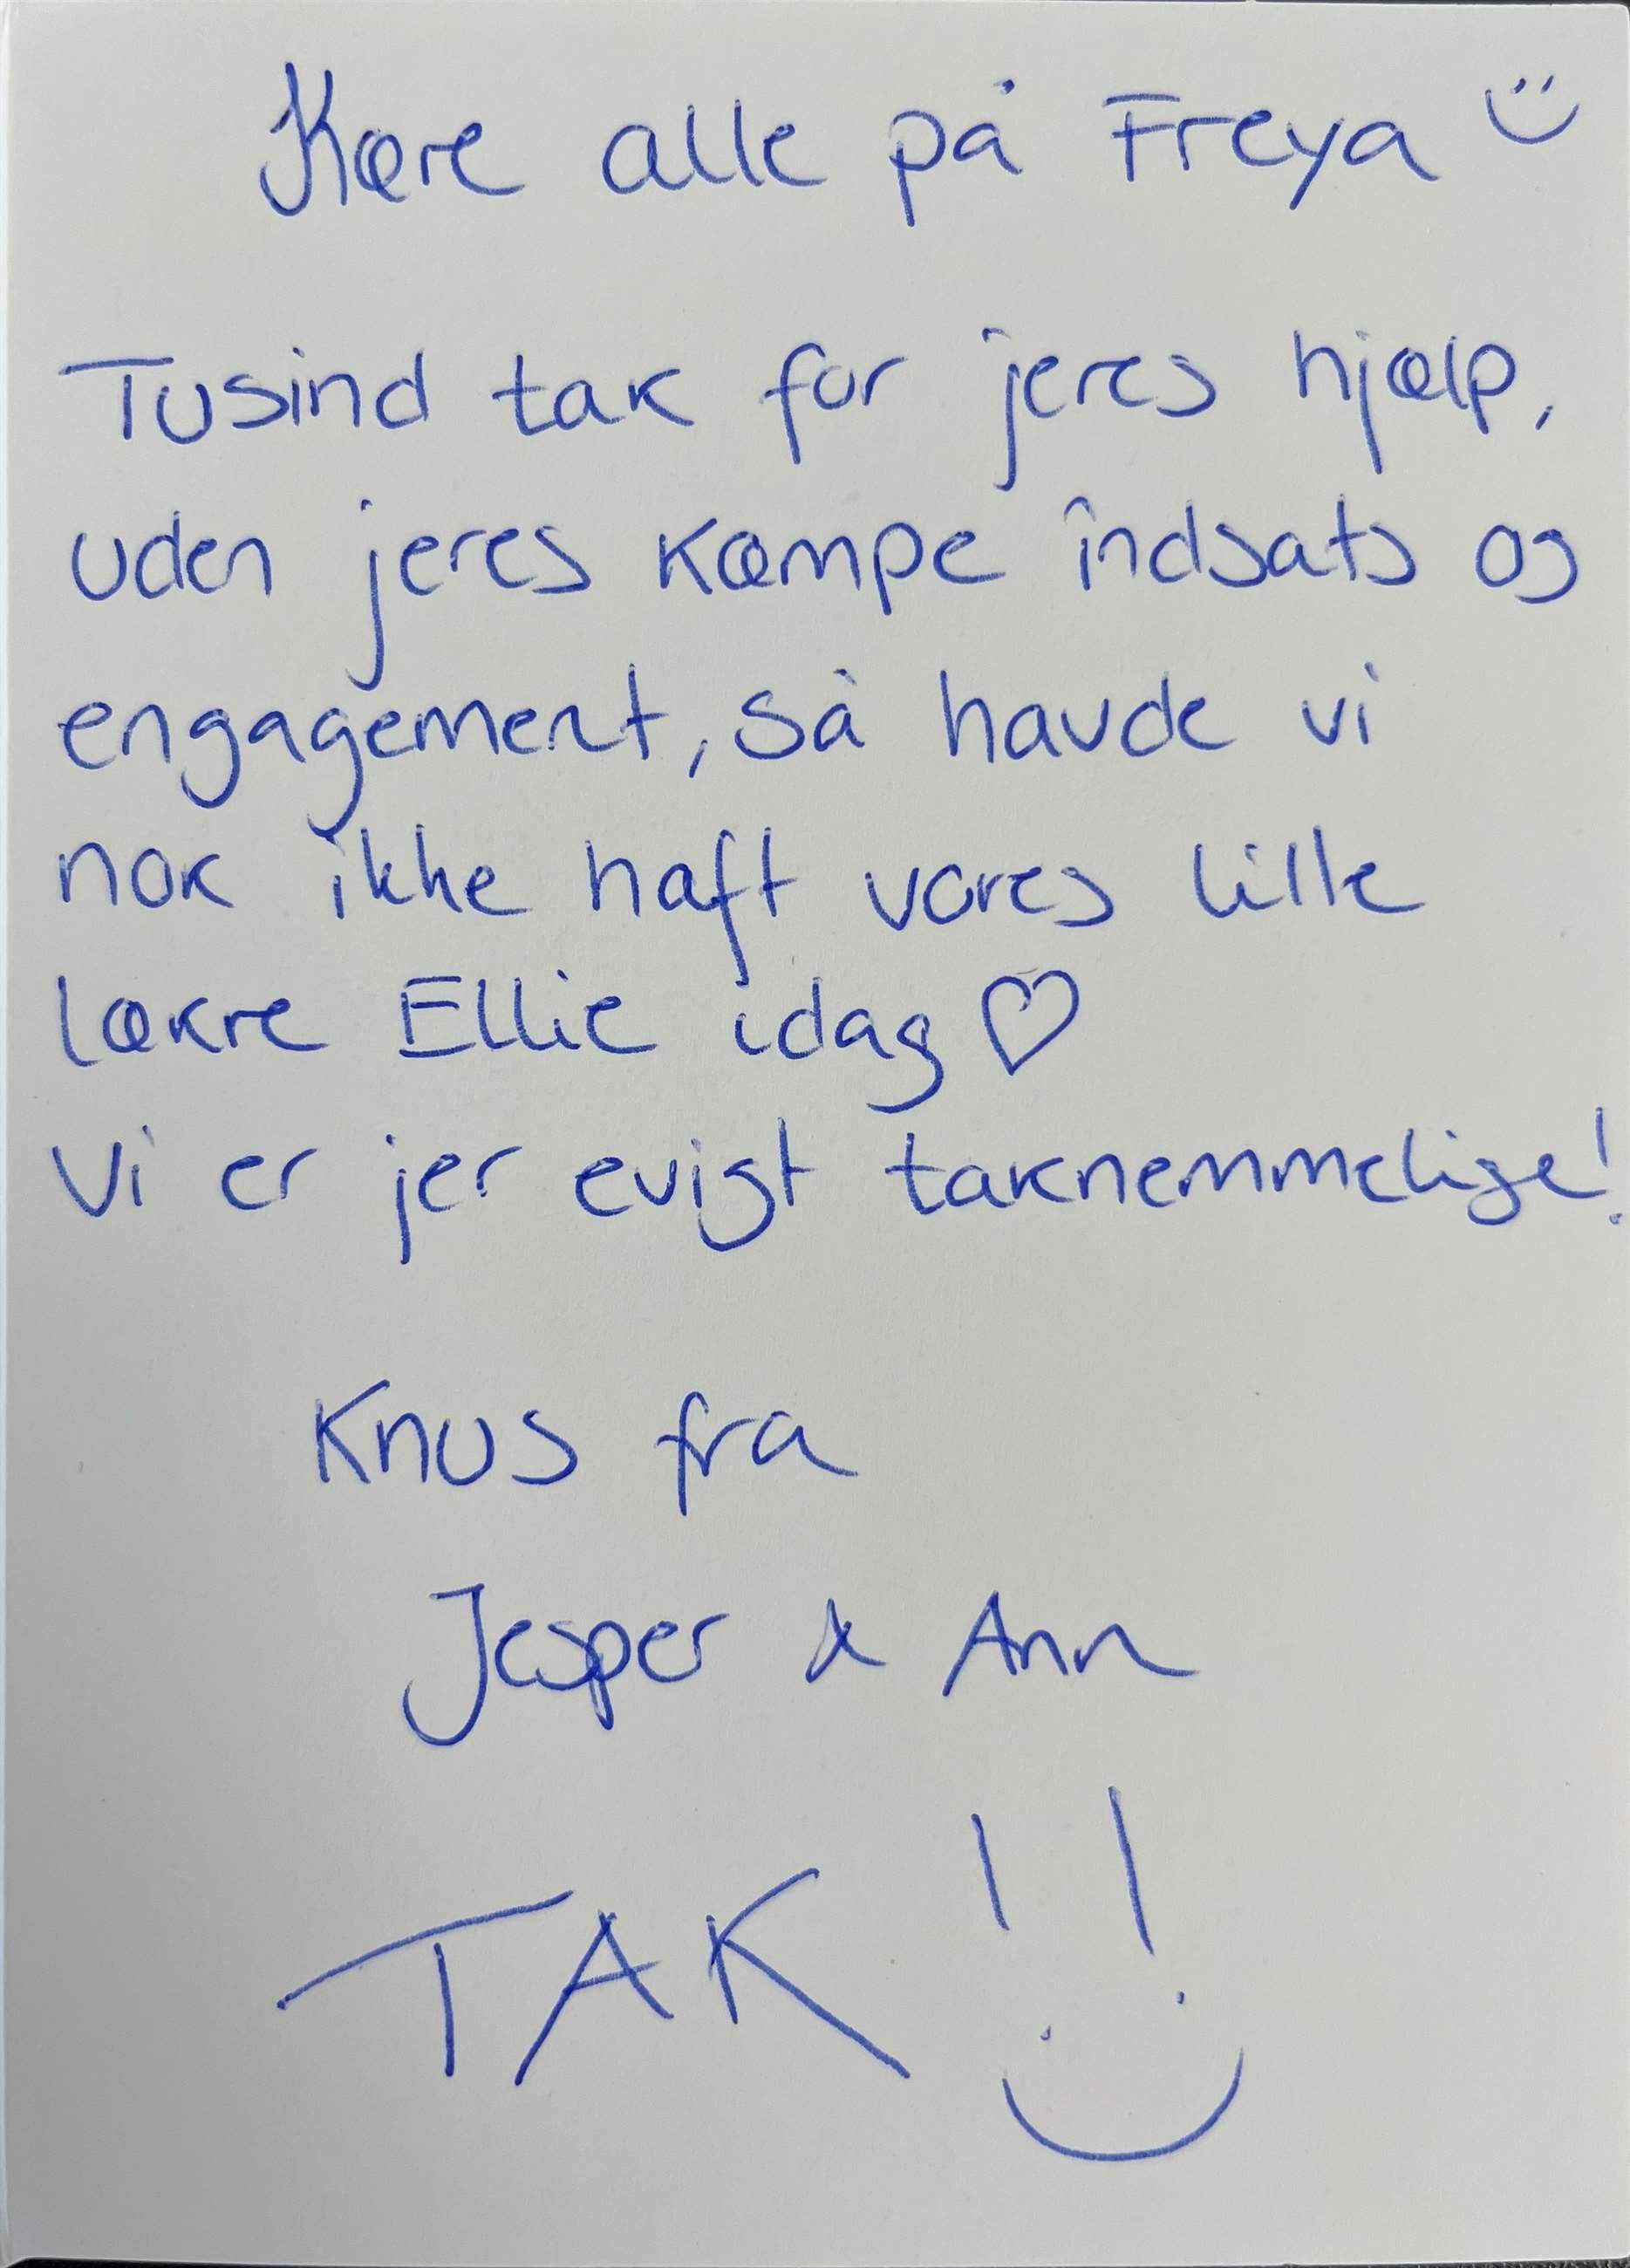 Kære alle på Freya
Tusind tak for jeres hjælp,
uden jeres kæmpe indsats og
engagement, så havde vi
nok ikke haft vores lille
lækre Ellie idag ♡
Vi er jer evigt taknemmelige!
Knus fra
Jesper & Ann
TAK !!